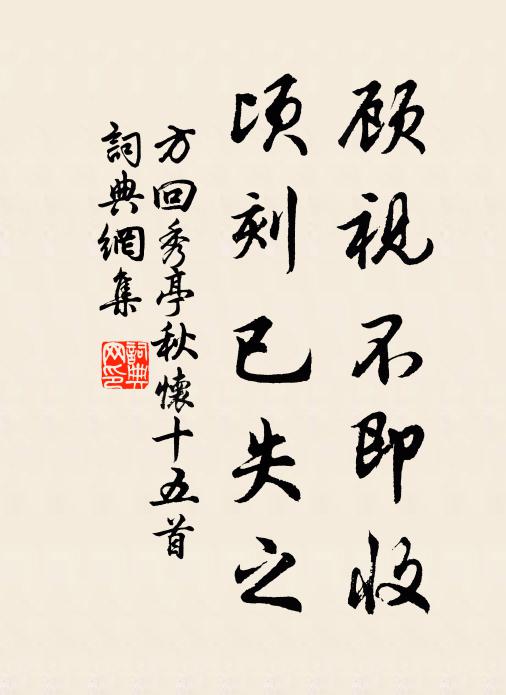 顾視不即收
頃刻已失之
方回秀亭秋懷十五首
詞典網集
詞典
网印